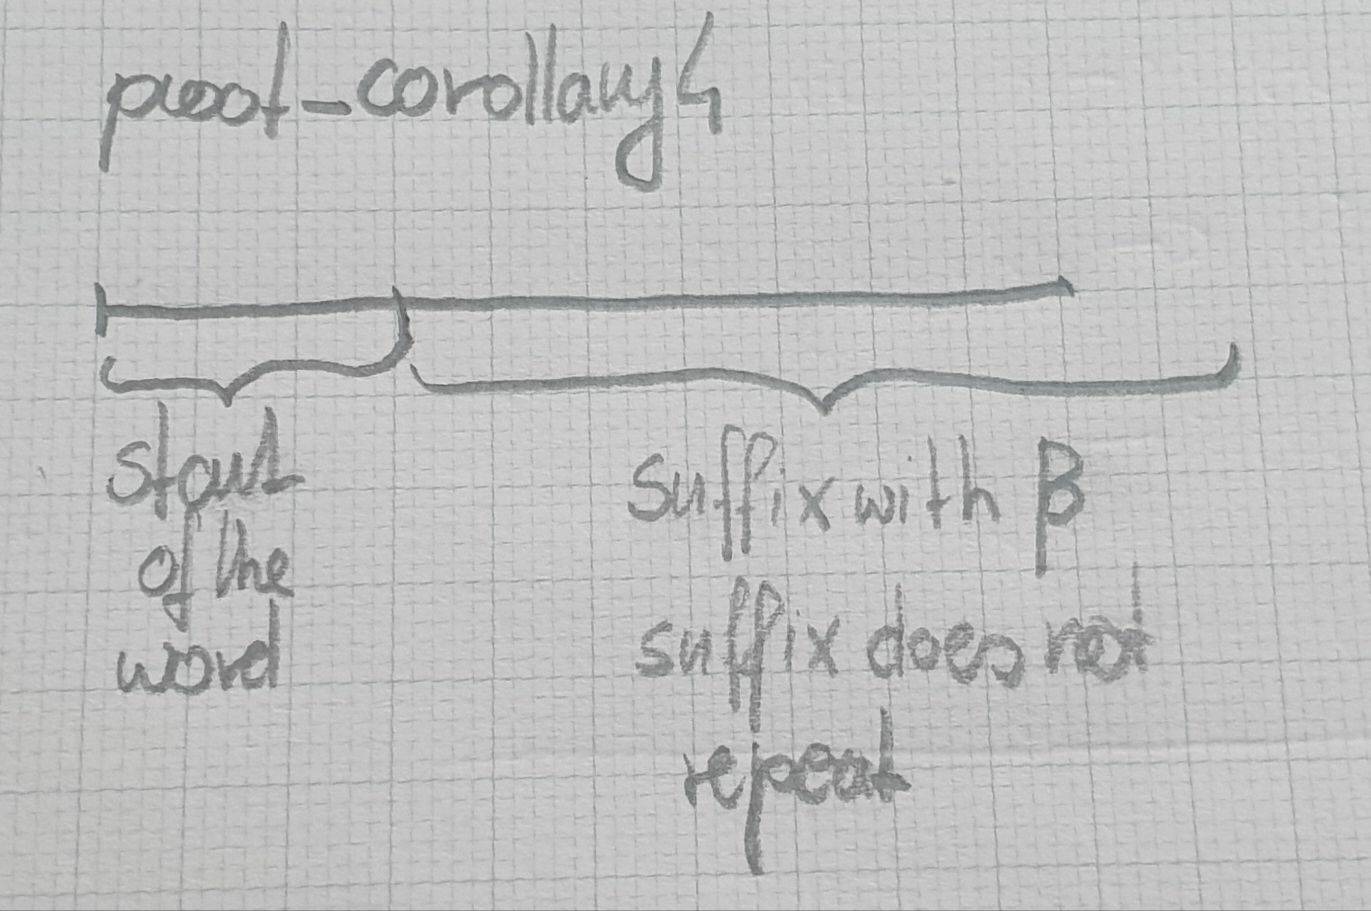 proof-corollary 4
start
of the
word
suffix with β
suffix does not
repeat